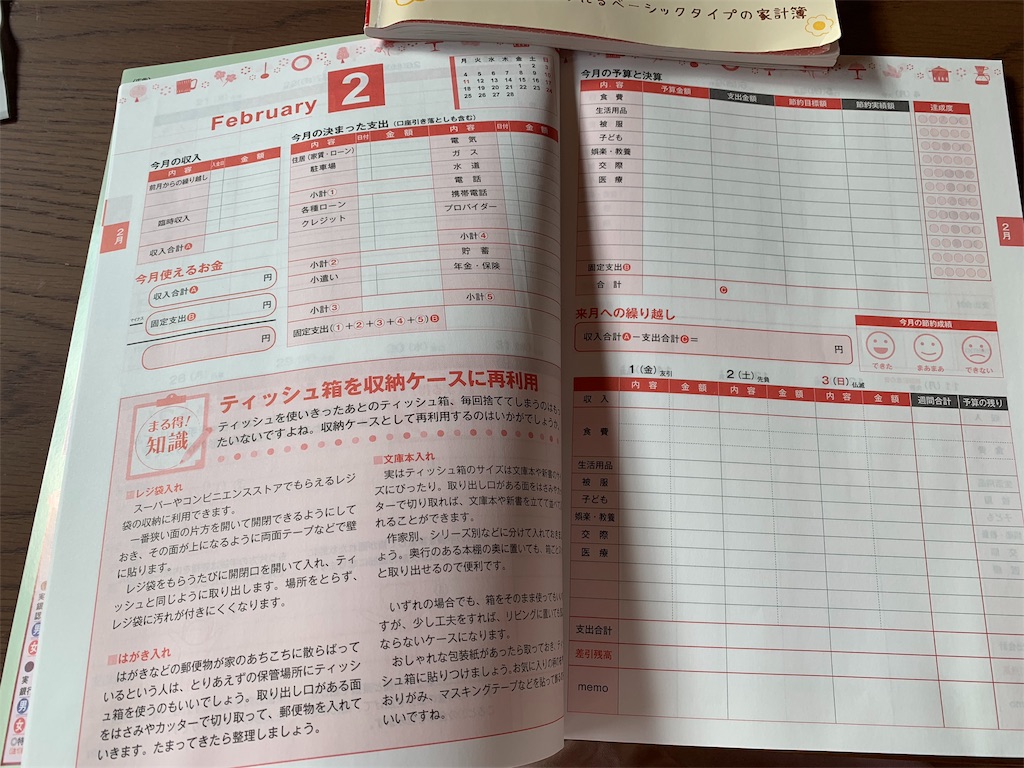 れるベーシックタイプの家計簿
February 2
月 火 水 木 金 土 日
1 2 3
4 5 6 7 8 9 10
11 12 13 14 15 16 17
18 19 20 21 22 23 24
25 26 27 28
今月の収入
内容 入金日 金額
前月からの繰り越し
臨時収入
収入合計A
今月使えるお金
収入合計A 円
マイナス
固定支出B 円
円
今月の決まった支出(口座引き落としも含む)
内容 日付 金額 内容 日付 金額
住居(家賃・ローン) 電気
駐車場 ガス
水道
小計① 電話
各種ローン 携帯電話
クレジット プロバイダー
小計④
小計② 貯蓄
小遣い 年金・保険
小計③ 小計⑤
固定支出(①+②+③+④+⑤)B
2月
まる得!
知識
ティッシュ箱を収納ケースに再利用
ティッシュを使いきったあとのティッシュ箱、毎回捨ててしまうのはもっ
たいないですよね。収納ケースとして再利用するのはいかがでしょうか
レジ袋入れ
スーパーやコンビニエンスストアでもらえるレジ
袋の収納に利用できます。
一番狭い面の片方を開いて開閉できるようにして
おき、その面が上になるように両面テープなどで壁
に貼ります。
レジ袋をもらうたびに開閉口を開いて入れ、ティ
ッシュと同じように取り出します。場所をとらず、
レジ袋に汚れが付きにくくなります。
はがき入れ
はがきなどの郵便物が家のあちこちに散らばって
いるという人は、とりあえずの保管場所にティッシ
ュ箱を使うのもいいでしょう。取り出し口がある面
をはさみやカッターで切り取って、郵便物を入れて
いきます。たまってきたら整理しましょう。
文庫本入れ
実はティッシュ箱のサイズは文庫本や新書
ズにぴったり。取り出し口がある面をはさみや
ターで切り取れば、文庫本や新書を立てて並べ
れることができます。
作家別、シリーズ別などに分けて入れておき
ょう。奥行のある本棚の奥に置いても、箱ご
と取り出せるので便利です。
いずれの場合でも、箱をそのまま使っても
すが、少し工夫をすれば、リビングに置いても
ならないケースになります。
おしゃれな包装紙があったら取っておき
シュ箱に貼りつけましょう。お気に入りの
おりがみ、マスキングテープなどを貼って
いいですね。
今月の予算と決算
内容 予算金額 支出金額 節約目標額 節約実績額 達成度
食費
生活用品
被服
子ども
娯楽・教養
交際
医療
固定支出B
合計 C
来月への繰り越し
収入合計A−支出合計C= 円
今月の節約成績
できた まあまあ できない
2月
1(金)友引 2(土)先負 3(日)仏滅
内容 金額 内容 金額 内容 金額 週間合計 予算の残り
収入
食費
生活用品
被服
子ども
娯楽・教養
交際
医療
支出合計
差引残高
memo